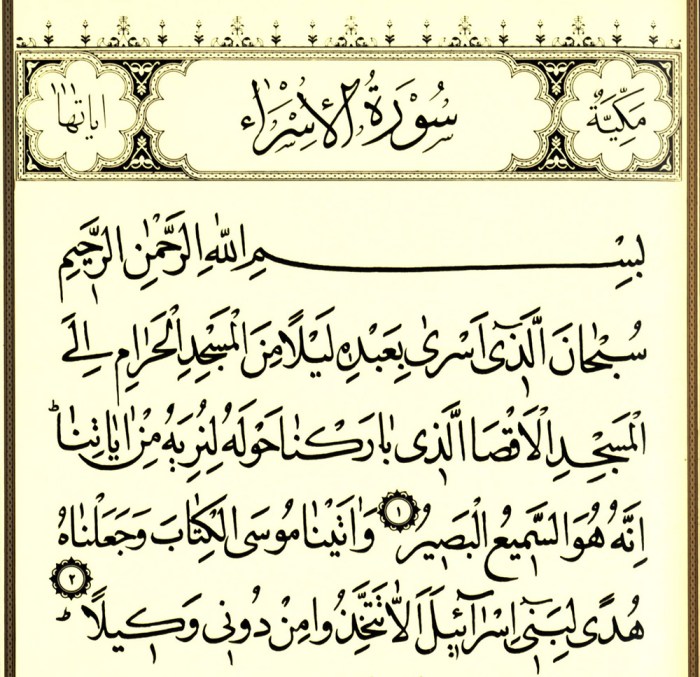 مَكِّيَّةٌ سُورَةُ الْاِسْرَٓاءِ اٰيَاتُهَا ١١١
بِسْمِ اللّٰهِ الرَّحْمٰنِ الرَّحِيمِ
سُبْحَانَ الَّذ۪ٓى اَسْرٰى بِعَبْدِه۪ لَيْلًا مِنَ الْمَسْجِدِ الْحَرَامِ اِلَى
الْمَسْجِدِ الْاَقْصَا الَّذ۪ى بَارَكْنَا حَوْلَهُ لِنُرِيَهُ مِنْ اٰيَاتِنَاۜ
اِنَّهُ هُوَ السَّم۪يعُ الْبَص۪يرُ ١ وَاٰتَيْنَا مُوسَى الْكِتَابَ وَجَعَلْنَاهُ
هُدًى لِبَن۪ٓى اِسْرَٓائ۪لَ اَلَّا تَتَّخِذُوا مِنْ دُون۪ى وَك۪يلًاۜ ٢